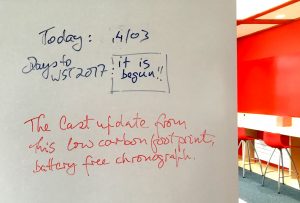 Today: 14/03
Days to it is
WST2017: begun!!
The last update from
this low carbon footprint,
battery free chronograph.